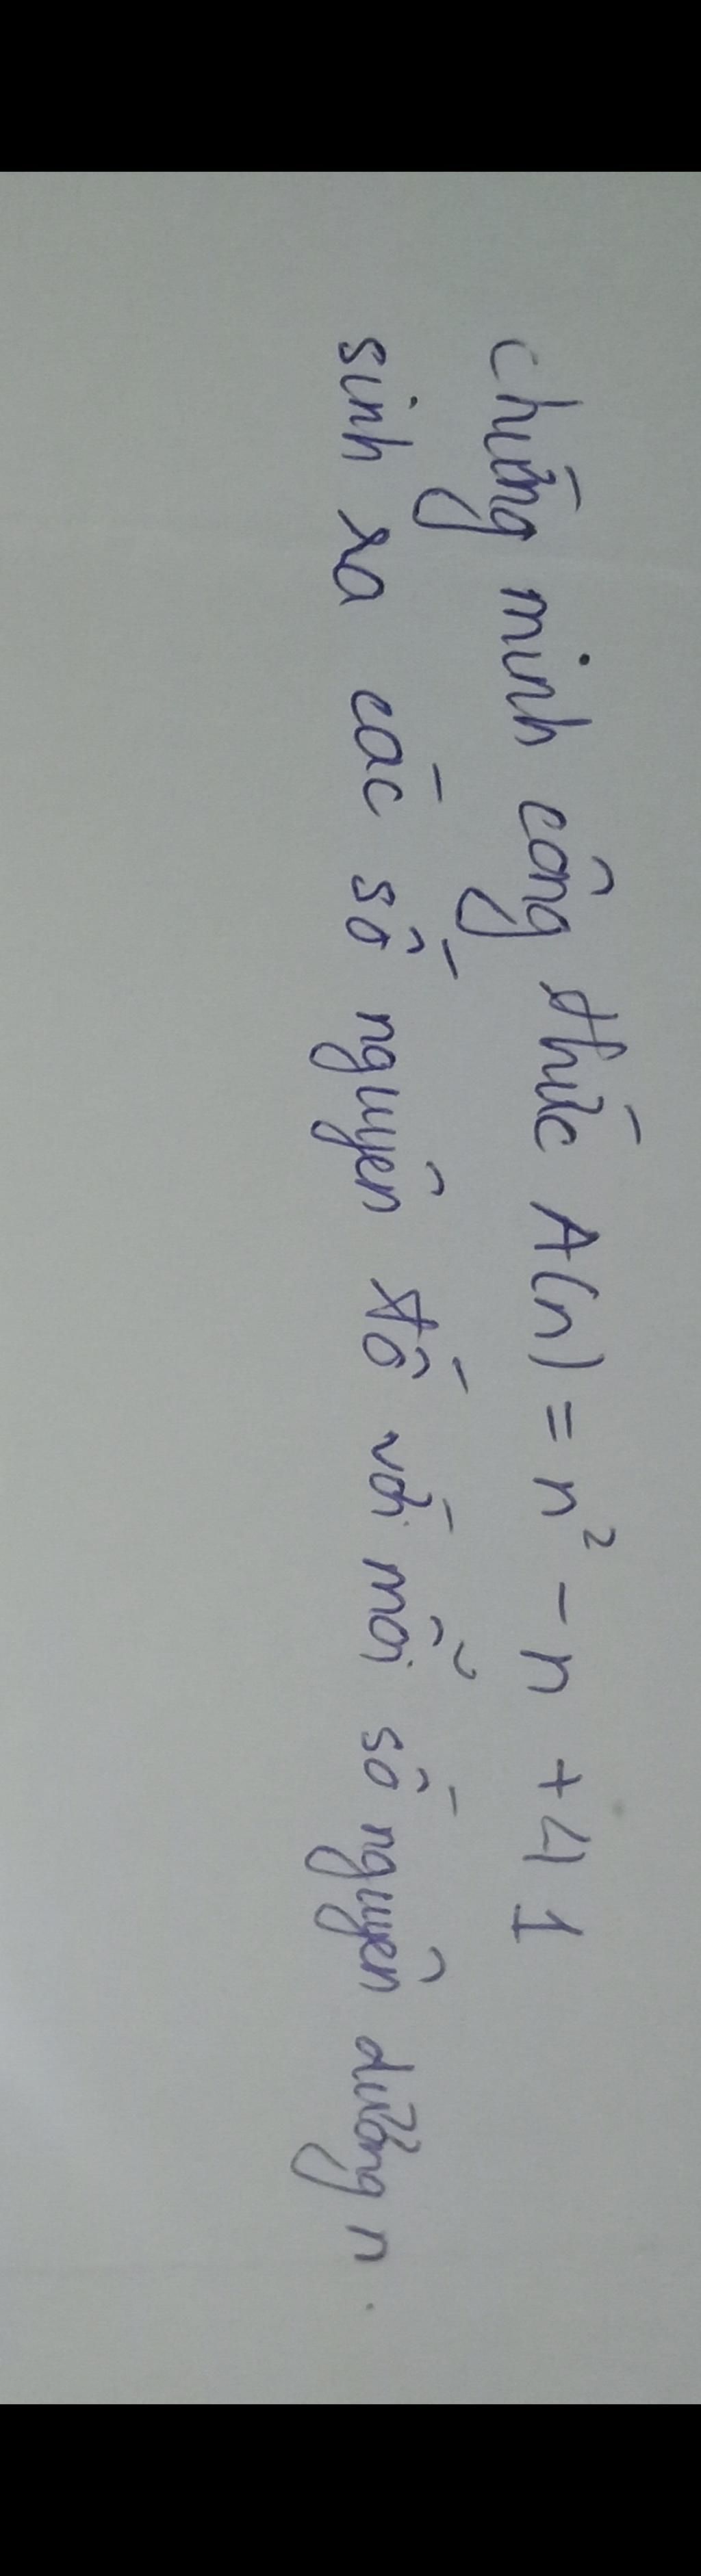 chứng minh công thức A(n) = n² - n + 41
sinh ra các số nguyên tố với mỗi số nguyên dương n.